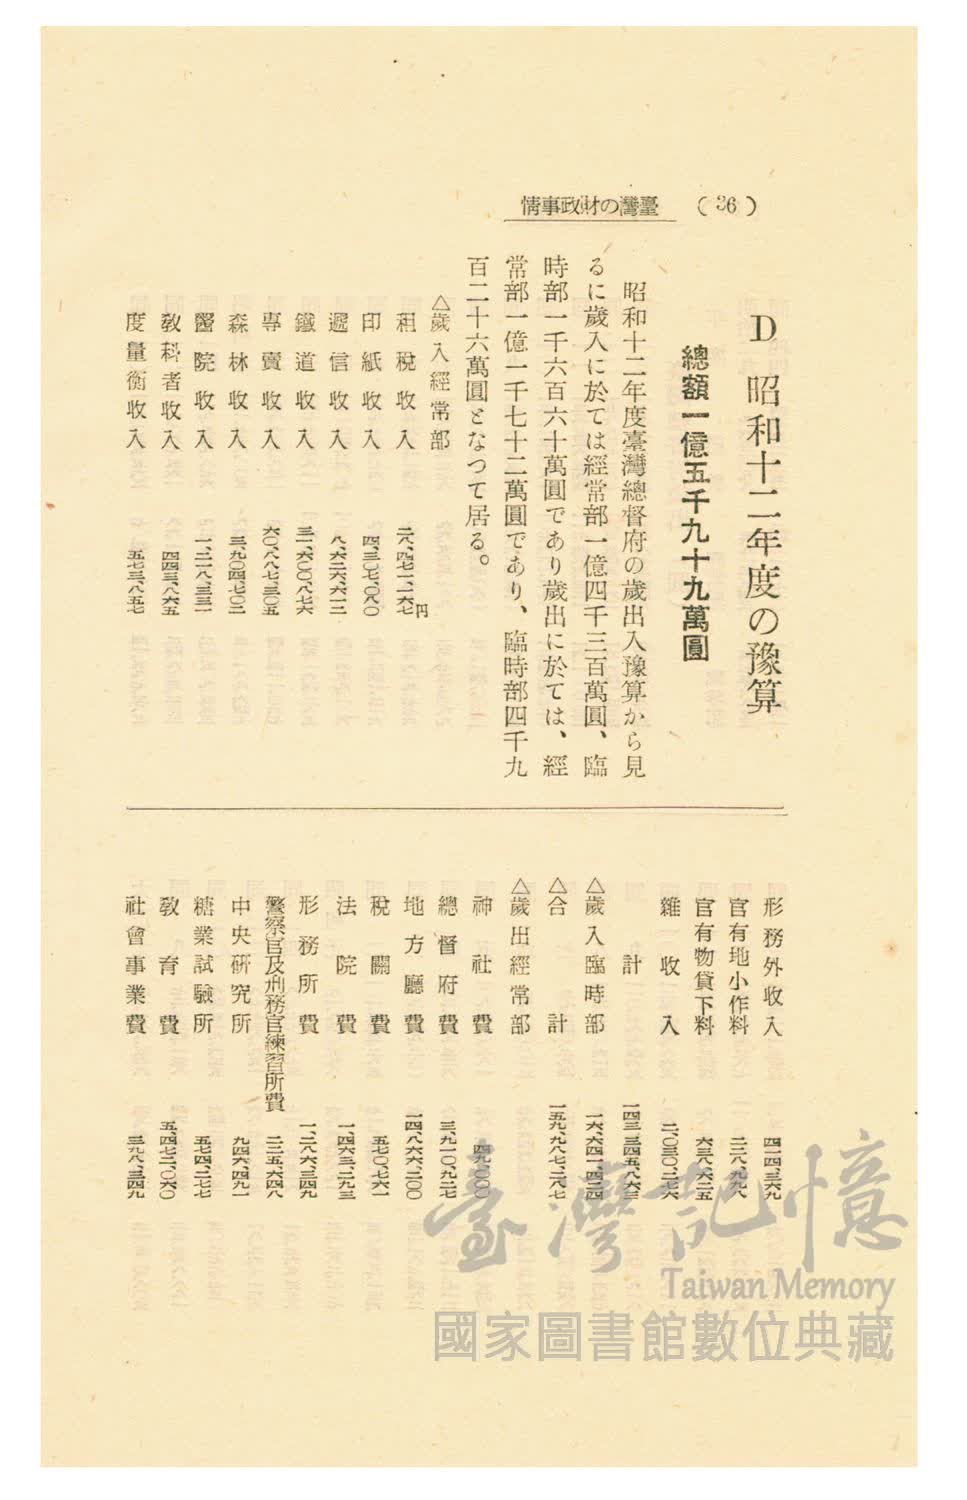 臺灣の財政事情 (36)
D 昭和十二年度の豫算
總額一億五千九十九萬圓
昭和十二年度臺灣總督府の歲出入豫算から見
るに歲入に於ては經常部一億四千三百萬圓、臨
時部一千六百六十萬圓であり歲出に於ては、經
常部一億一千七十二萬圓であり、臨時部四千九
百二十六萬圓となつて居る。
△歲入經常部
租稅收入 二八、四七一、二六七円
印紙收入 四、三〇七、〇八〇
遞信收入 八、六二六、六一二
鐵道收入 三一、六〇〇、八七六
專賣收入 六〇、八八七、三〇五
森林收入 三、九〇四、七〇二
醫院收入 一、二一八、三三一
敎科書收入 四四三、八六五
度量衡收入 五七三、八五七
形務外收入 四一四、三六九
官有地小作料 二二八、九九八
官有物貸下料 六三八、六二五
雜收入 二、〇三〇、二七六
計 一四三、三四五、八六三
△歲入臨時部 一六、六四一、四二四
△合計 一五九、九八七、二八七
△歲出經常部
神社費 四九、〇〇〇
總督府費 三、九一〇、九二七
地方廳費 一四、八六六、二〇〇
稅關費 五七〇、七六一
法院費 一、四六三、二九三
形務所費 一、二八六、三四九
警察官及刑務官練習所費 二三五、六四八
中央硏究所 九四六、四九一
糖業試驗所 五七四、二七七
敎育費 五、四七二、〇六〇
社會事業費 三九八、三四九
臺灣記憶
Taiwan Memory
國家圖書館數位典藏